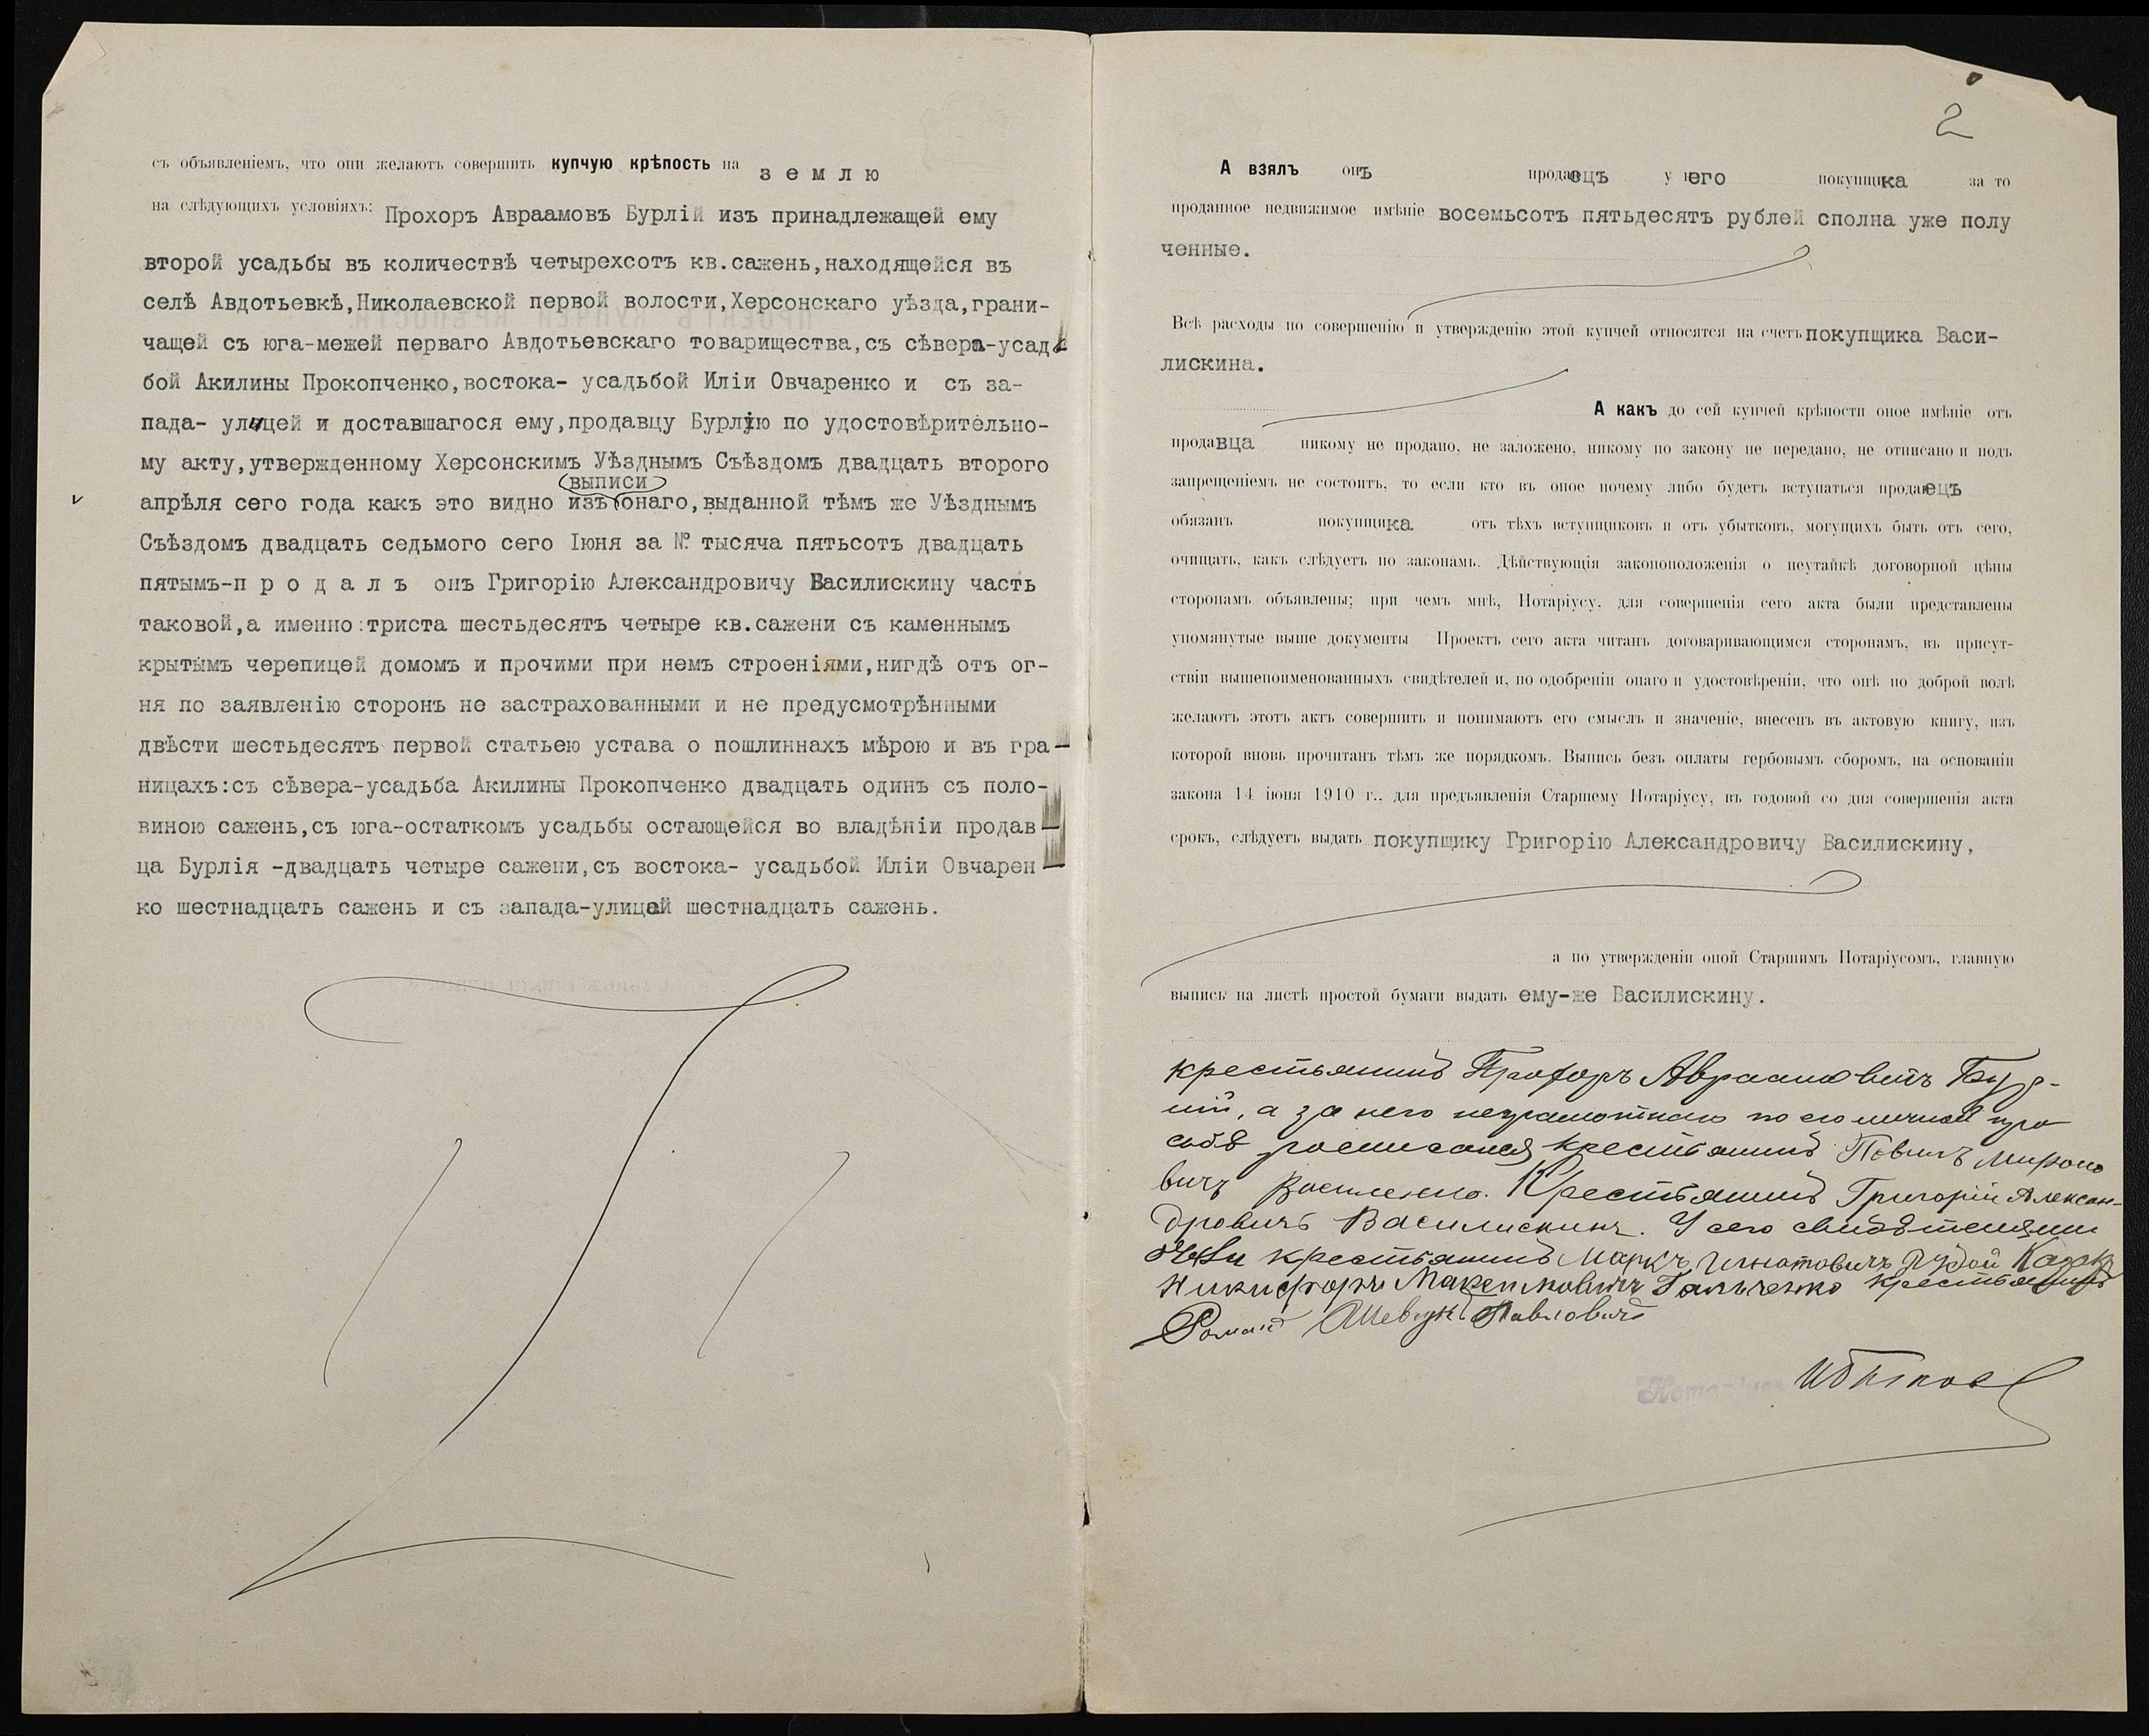 съ объявленіемъ, что они желаютъ совершить купчую крѣпость на землю
на слѣдующихъ условіяхъ: Прохоръ Авраамовъ Бурлій изъ принадлежащей ему
второй усадьбы въ количествѣ четырехсотъ кв.сажень,находящейся въ
селѣ Авдотьевкѣ,Николаевской первой волости,Херсонскаго уѣзда,грани-
чащей съ юга-межей перваго Авдотьевскаго товарищества,съ сѣвера-усадь
бой Акилины Прокопченко,востока- усадьбой Иліи Овчаренко и съ за-
пада- улицей и доставшагося ему,продавцу Бурлію по удостовѣрительно-
му акту,утвержденному Херсонскимъ Уѣзднымъ Съѣздомъ двадцать второго
выписи
апрѣля сего года какъ это видно изъ онаго,выданной тѣмъ же Уѣзднымъ
Съѣздомъ двадцать седьмого сего Іюня за № тысяча пятьсотъ двадцать
пятымъ-п р о д а л ъ онъ Григорію Александровичу Василискину часть
таковой,а именно:триста шестьдесятъ четыре кв.сажени съ каменнымъ
крытымъ черепицей домомъ и прочими при немъ строеніями,нигдѣ отъ ог-
ня по заявленію сторонъ не застрахованными и не предусмотрѣнными
двѣсти шестьдесятъ первой статьею устава о пошлиннахъ мѣрою и въ гра-
ницахъ:съ сѣвера-усадьба Акилины Прокопченко двадцать одинъ съ поло-
виною сажень,съ юга-остаткомъ усадьбы остающейся во владѣніи продав-
ца Бурлія -двадцать четыре сажени,съ востока- усадьбой Иліи Овчарен-
ко шестнадцать сажень и съ запада-улицей шестнадцать сажень.
2
А взялъ онъ продавецъ у него покупщика за то
проданное недвижимое имѣніе восемьсотъ пятьдесятъ рублей сполна уже полу
ченные.
Всѣ расходы по совершенію и утвержденію этой купчей относятся на счетъ покупщика Васи-
лискина.
А какъ до сей купчей крѣпости оное имѣніе отъ
продавца никому не продано, не заложено, никому по закону не передано, не отписано и подъ
запрещеніемъ не состоитъ, то если кто въ оное почему либо будетъ вступаться продавецъ
обязанъ покупщика отъ тѣхъ вступщиковъ и отъ убытковъ, могущихъ быть отъ сего,
очищать, какъ слѣдуетъ по законамъ. Дѣйствующія законоположенія о неутайкѣ договорной цѣны
сторонамъ объявлены; при чемъ мнѣ, Нотаріусу, для совершенія сего акта были представлены
упомянутые выше документы Проектъ сего акта читанъ договаривающимся сторонамъ, въ присут-
ствіи вышепоименованныхъ свидѣтелей и, по одобреніи онаго и удостовѣреніи, что онѣ по доброй волѣ
желаютъ этотъ актъ совершить и понимаютъ его смыслъ и значеніе, внесенъ въ актовую книгу, изъ
которой вновь прочитанъ тѣмъ же порядкомъ. Выпись безъ оплаты гербовымъ сборомъ, на основаніи
закона 14 іюня 1910 г., для предъявленія Старшему Нотаріусу, въ годовой со дня совершенія акта
срокъ, слѣдуетъ выдать покупщику Григорію Александровичу Василискину,
а по утвержденіи оной Старшимъ Нотаріусомъ, главную
выпись на листѣ простой бумаги выдать ему-же Василискину.
крестьянинъ Прохоръ Авраамовичъ Бур-
лій, а за него неграмотнаго по его личной про
сьбѣ росписался крестьянинъ Мироно
вичъ Василенко. Крестьянинъ Григорій Алексан-
дровичъ Василискинъ. У сего свидѣтелями
были крестьянинъ Маркъ Игнатовичъ Козакъ
Никифоръ Максимовичъ Гальченко крестьянинъ
Романъ Шевчукъ Павловичъ
Нотаріусъ